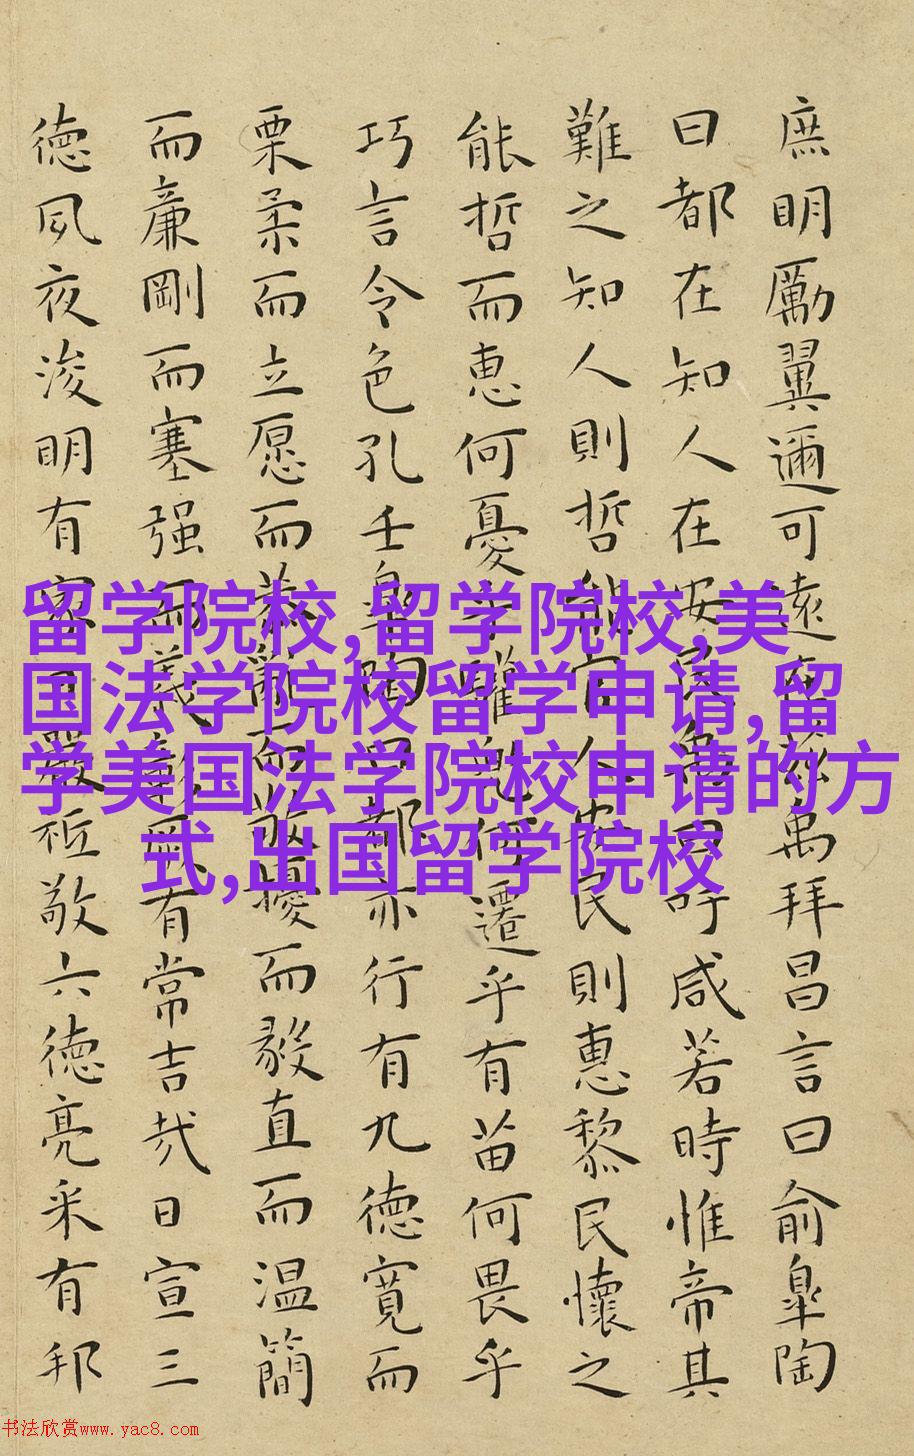 庶明勵翼邇可遠在茲禹拜昌言曰俞皐陶
曰都在知人在安民禹曰吁咸若時惟帝其
難之知人則哲能官人安民則惠黎民懷之
能哲而恵何憂乎驩兜何遷乎有苗何畏乎
巧言令色孔壬皐陶曰都亦行有九德寛而
栗柔而立愿而恭亂而敬擾而毅直而温簡
而廉剛而塞强而義彰厥有常吉哉日宣三
德夙夜浚明有家日嚴祗敬六德亮采有邦
留学院校,留学院校,美
国法学院校留学申请,留
学美国法学院校申请的方
式,出国留学院校
书法欣赏www.yac8.com